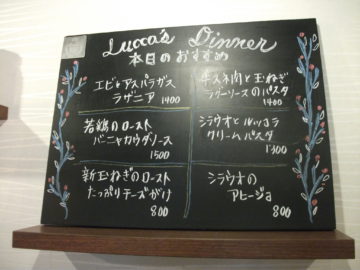 Lucca's Dinner
本日のおすすめ
エビとアスパラガス
ラザニア 1400
若鶏のロースト
バーニャカウダソース
1500
新玉ねぎのロースト
たっぷりチーズがけ
800
牛スネ肉と玉ねぎ
ラグーソースのパスタ
1400
シラウオとルッコラ
クリームパスタ
1300
シラウオの
アヒージョ
800